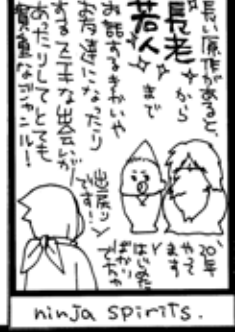 長い原作があると、
長老から
若人まで
お話するきかいや
お友達になったり
するステキな出会いが
あったりしてとても
貴重なジャンル!
20年
やって
ます
はじめた
ばかり
でちゅ
出戻り
です!!
ninja spirits.